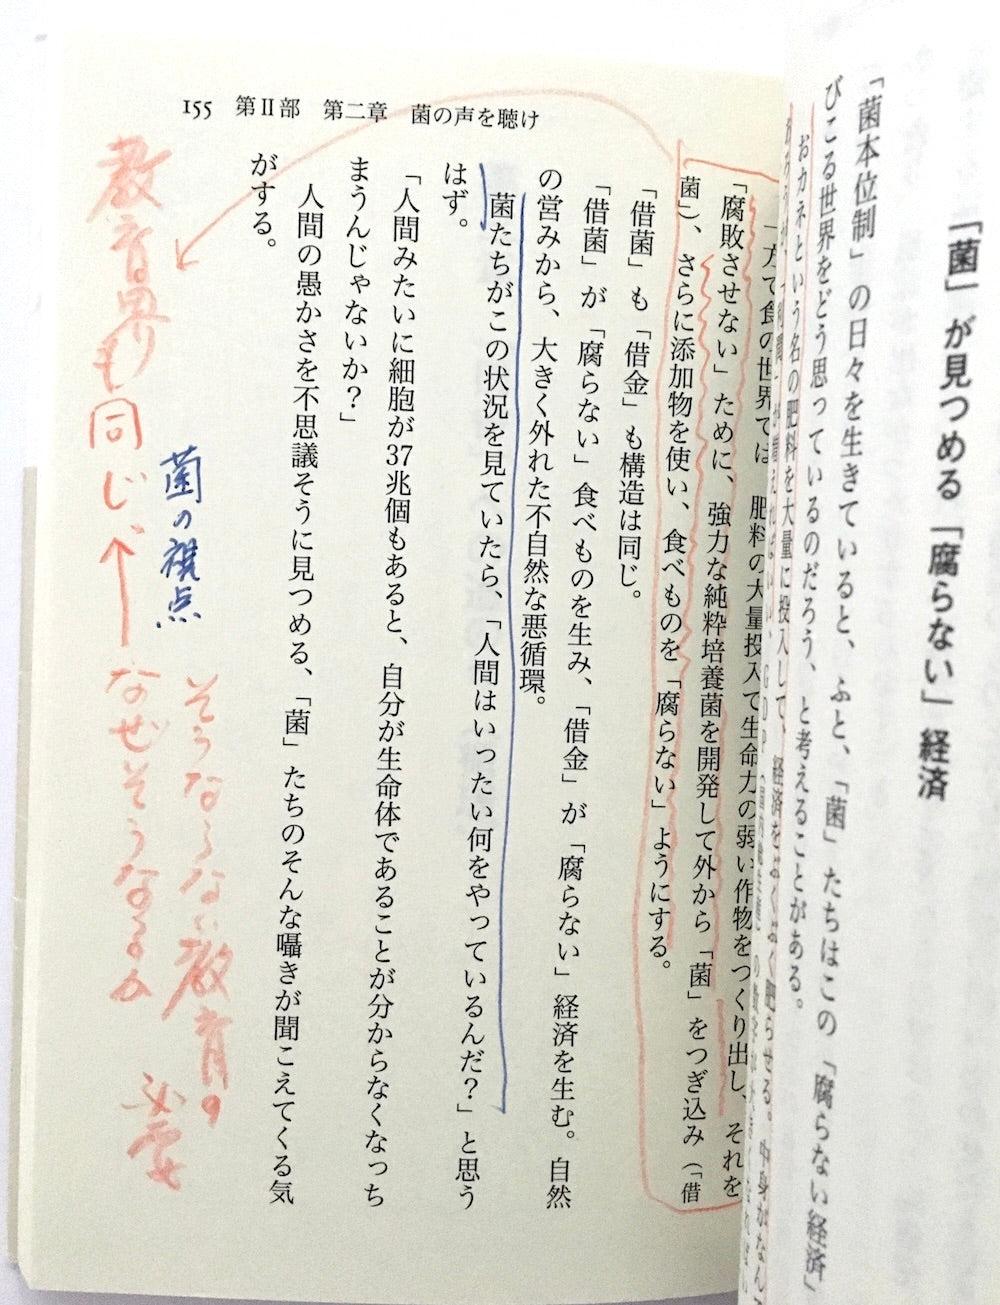 「菌」が見つめる「腐らない」経済
「菌本位制」の日々を生きていると、ふと、「菌」たちはこの「腐らない経済」
びこる世界をどう思っているのだろう、と考えることがある。
おカネという名の肥料を大量に投入して、経済をぶくぶく肥らせる。中身がなん
155 第Ⅱ部 第二章 菌の声を聴け
一方で食の世界では、肥料の大量投入で生命力の弱い作物をつくり出し、それを
「腐敗させない」ために、強力な純粋培養菌を開発して外から「菌」をつぎ込み(「借
菌」)、さらに添加物を使い、食べものを「腐らない」ようにする。
「借菌」も「借金」も構造は同じ。
「借菌」が「腐らない」食べものを生み、「借金」が「腐らない」経済を生む。自然
の営みから、大きく外れた不自然な悪循環。
菌たちがこの状況を見ていたら、「人間はいったい何をやっているんだ?」と思う
はず。
「人間みたいに細胞が37兆個もあると、自分が生命体であることが分からなくなっち
まうんじゃないか?」
人間の愚かさを不思議そうに見つめる、「菌」たちのそんな囁きが聞こえてくる気
がする。
菌の視点
そうならない教育の
必要
教育界も同じ、
なぜそうなるか